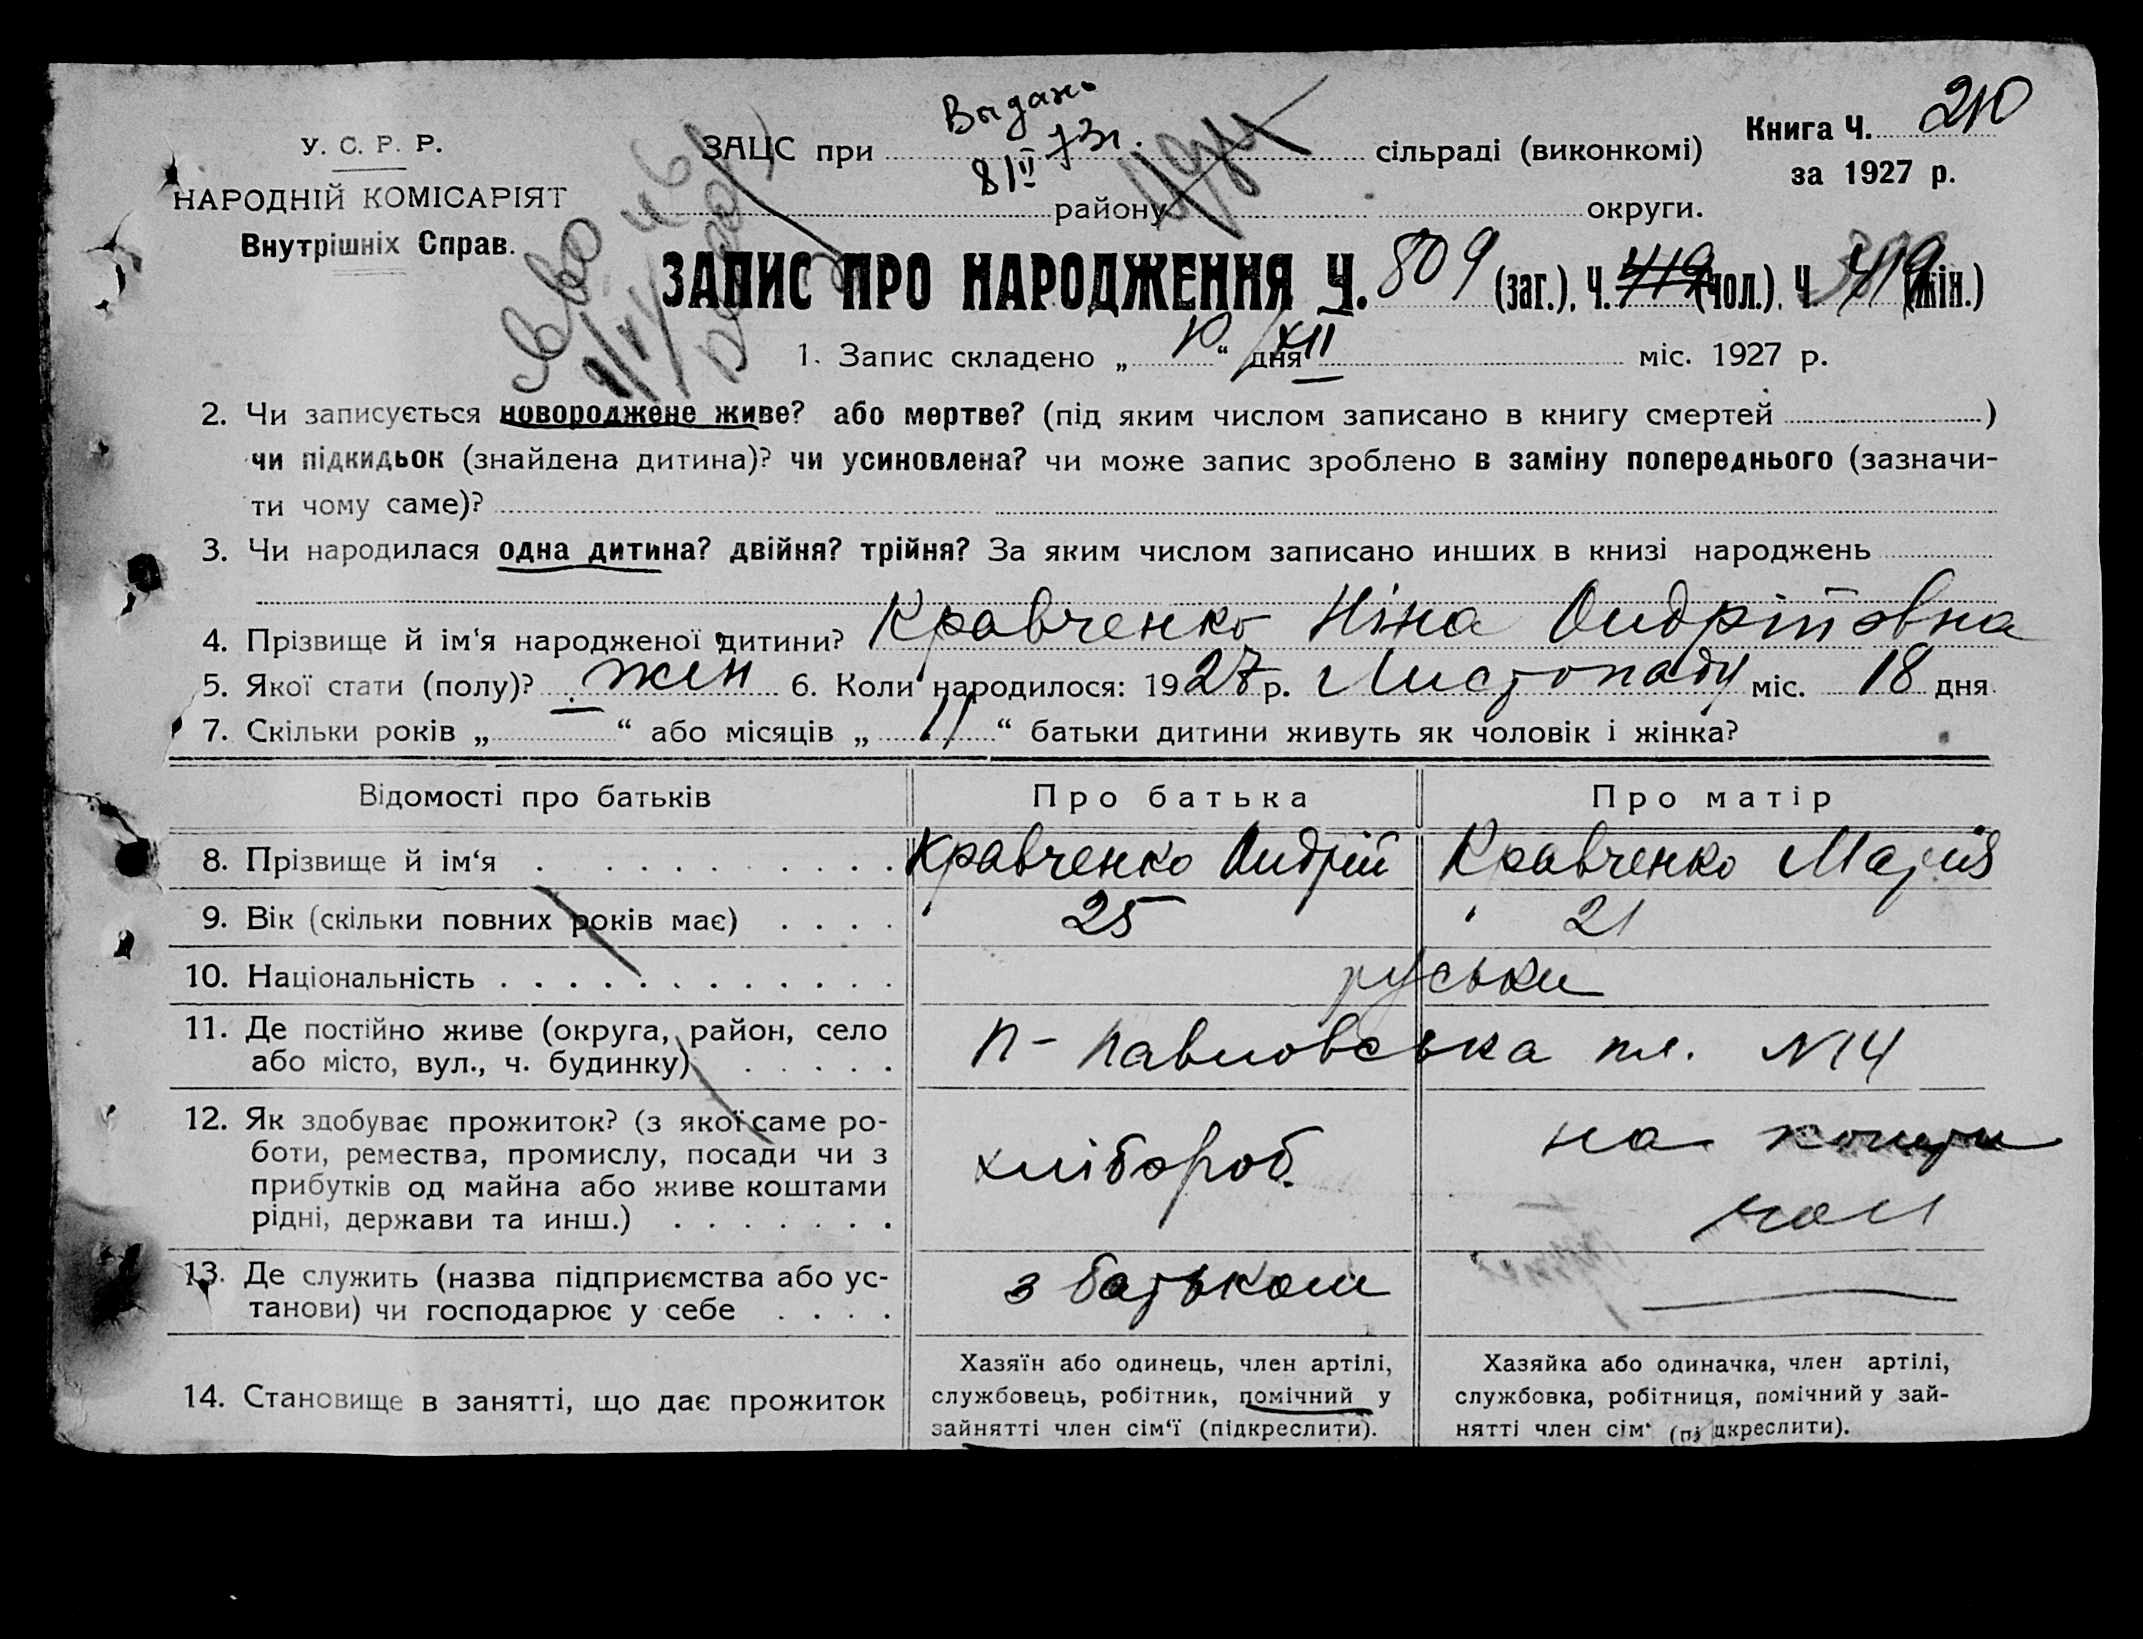 У. С. Р. Р.
НАРОДНІЙ КОМІСАРІЯТ
Внутрішніх Справ.
Выдано
8/II 73г.
ЗАЦС при сільраді (виконкомі)
району округи.
Книга Ч. 210
за 1927 р.
ЗАПИС ПРО НАРОДЖЕННЯ Ч. 809 (заг.), Ч. 419 (чол.), Ч. 419 (жін.)
1. Запис складено „ 10 “ дня XII міс. 1927 р.
2. Чи записується новороджене живе? або мертве? (під яким числом записано в книгу смертей )
чи підкидьок (знайдена дитина)? чи усиновлена? чи може запис зроблено в заміну попереднього (зазначи-
ти чому саме)?
3. Чи народилася одна дитина? двійня? трійня? За яким числом записано инших в книзі народжень
4. Прізвище й ім‘я народженої дитини? Кравченко Ніна Андріївна
5. Якої стати (полу)? жен 6. Коли народилося: 1927 р. Листопаду міс. 18 дня
7. Скільки років „ “ або місяців „ 11 “ батьки дитини живуть як чоловік і жінка?
Відомості про батьків Про батька Про матір
8. Прізвище й ім‘я Кравченко Андрій Кравченко Марія
9. Вік (скільки повних років має) 25 21
10. Національність руськи
11. Де постійно живе (округа, район, село
або місто, вул., ч. будинку) П-Павловська пл. №14
12. Як здобуває прожиток? (з якої саме ро-
боти, ремества, промислу, посади чи з
прибутків од майна або живе коштами
рідні, держави та инш.)
хлібороб.
на кошти
чол
13. Де служить (назва підприємства або ус-
танови) чи господарює у себе
з батьком
14. Становище в занятті, що дає прожиток
Хазяїн або одинець, член артілі,
службовець, робітник, помічний у
зайнятті член сім‘ї (підкреслити).
Хазяйка або одиначка, член артілі,
службовка, робітниця, помічний у зай-
нятті член сім‘ (підкреслити).